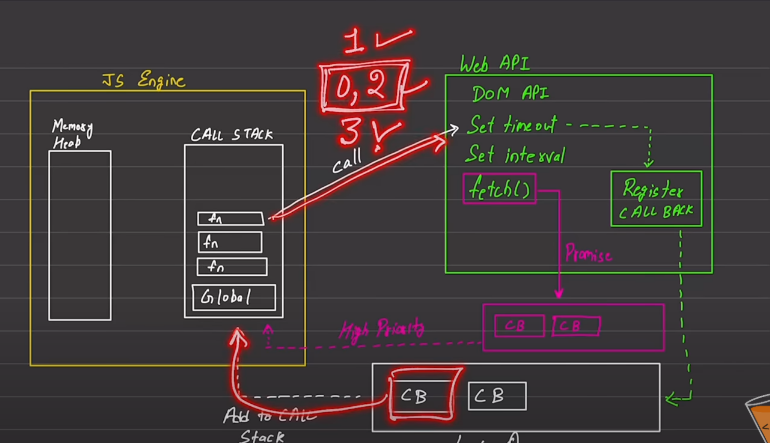 1
0, 2
3
JS Engine
Memory
Heab
CALL STACK
fn
fn
fn
Global
call
Web API
DOM API
Set timeout
Set interval
fetch()
Register
CALL BACK
Promise
CB CB
High Priority
CB CB
Add to CALL
Stack